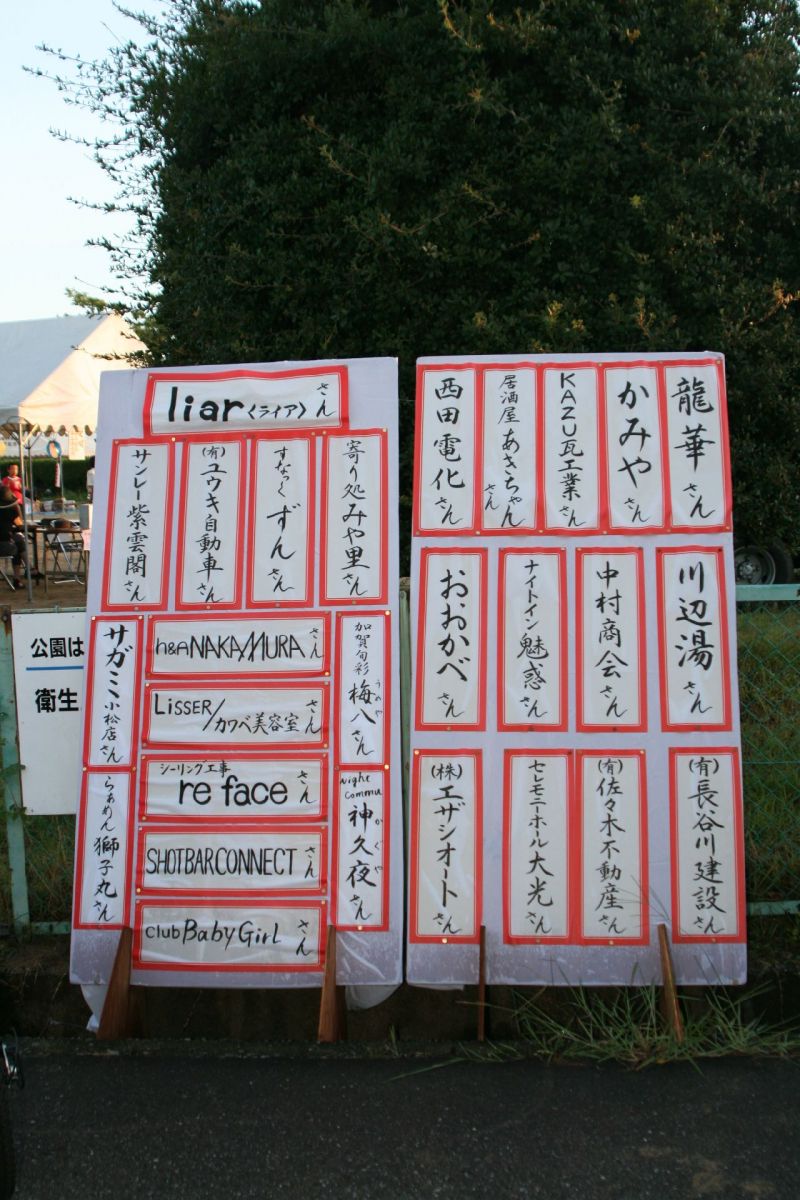 liar〈ライア〉さん
寄り処みや里さん
すなっくずんさん
(有)ユウキ自動車さん
サンレー紫雲閣さん
加賀旬彩梅八さん
うめや
h&A NAKAMURAさん
LISSER/カワベ美容室さん
シーリング工事
re faceさん
SHOTBARCONNECTさん
club BabyGirLさん
サガミ小松店さん
Nighe
commu
神久夜さん
かぐや
らぁめん獅子丸さん
龍華さん
かみやさん
KAZU瓦工業さん
居酒屋あきちゃんさん
西田電化さん
川辺湯さん
中村商会さん
ナイトイン魅惑さん
おおかべさん
(有)長谷川建設さん
(有)佐々木不動産さん
セレモニーホール大光さん
(株)エザシオートさん
公園は
衛生